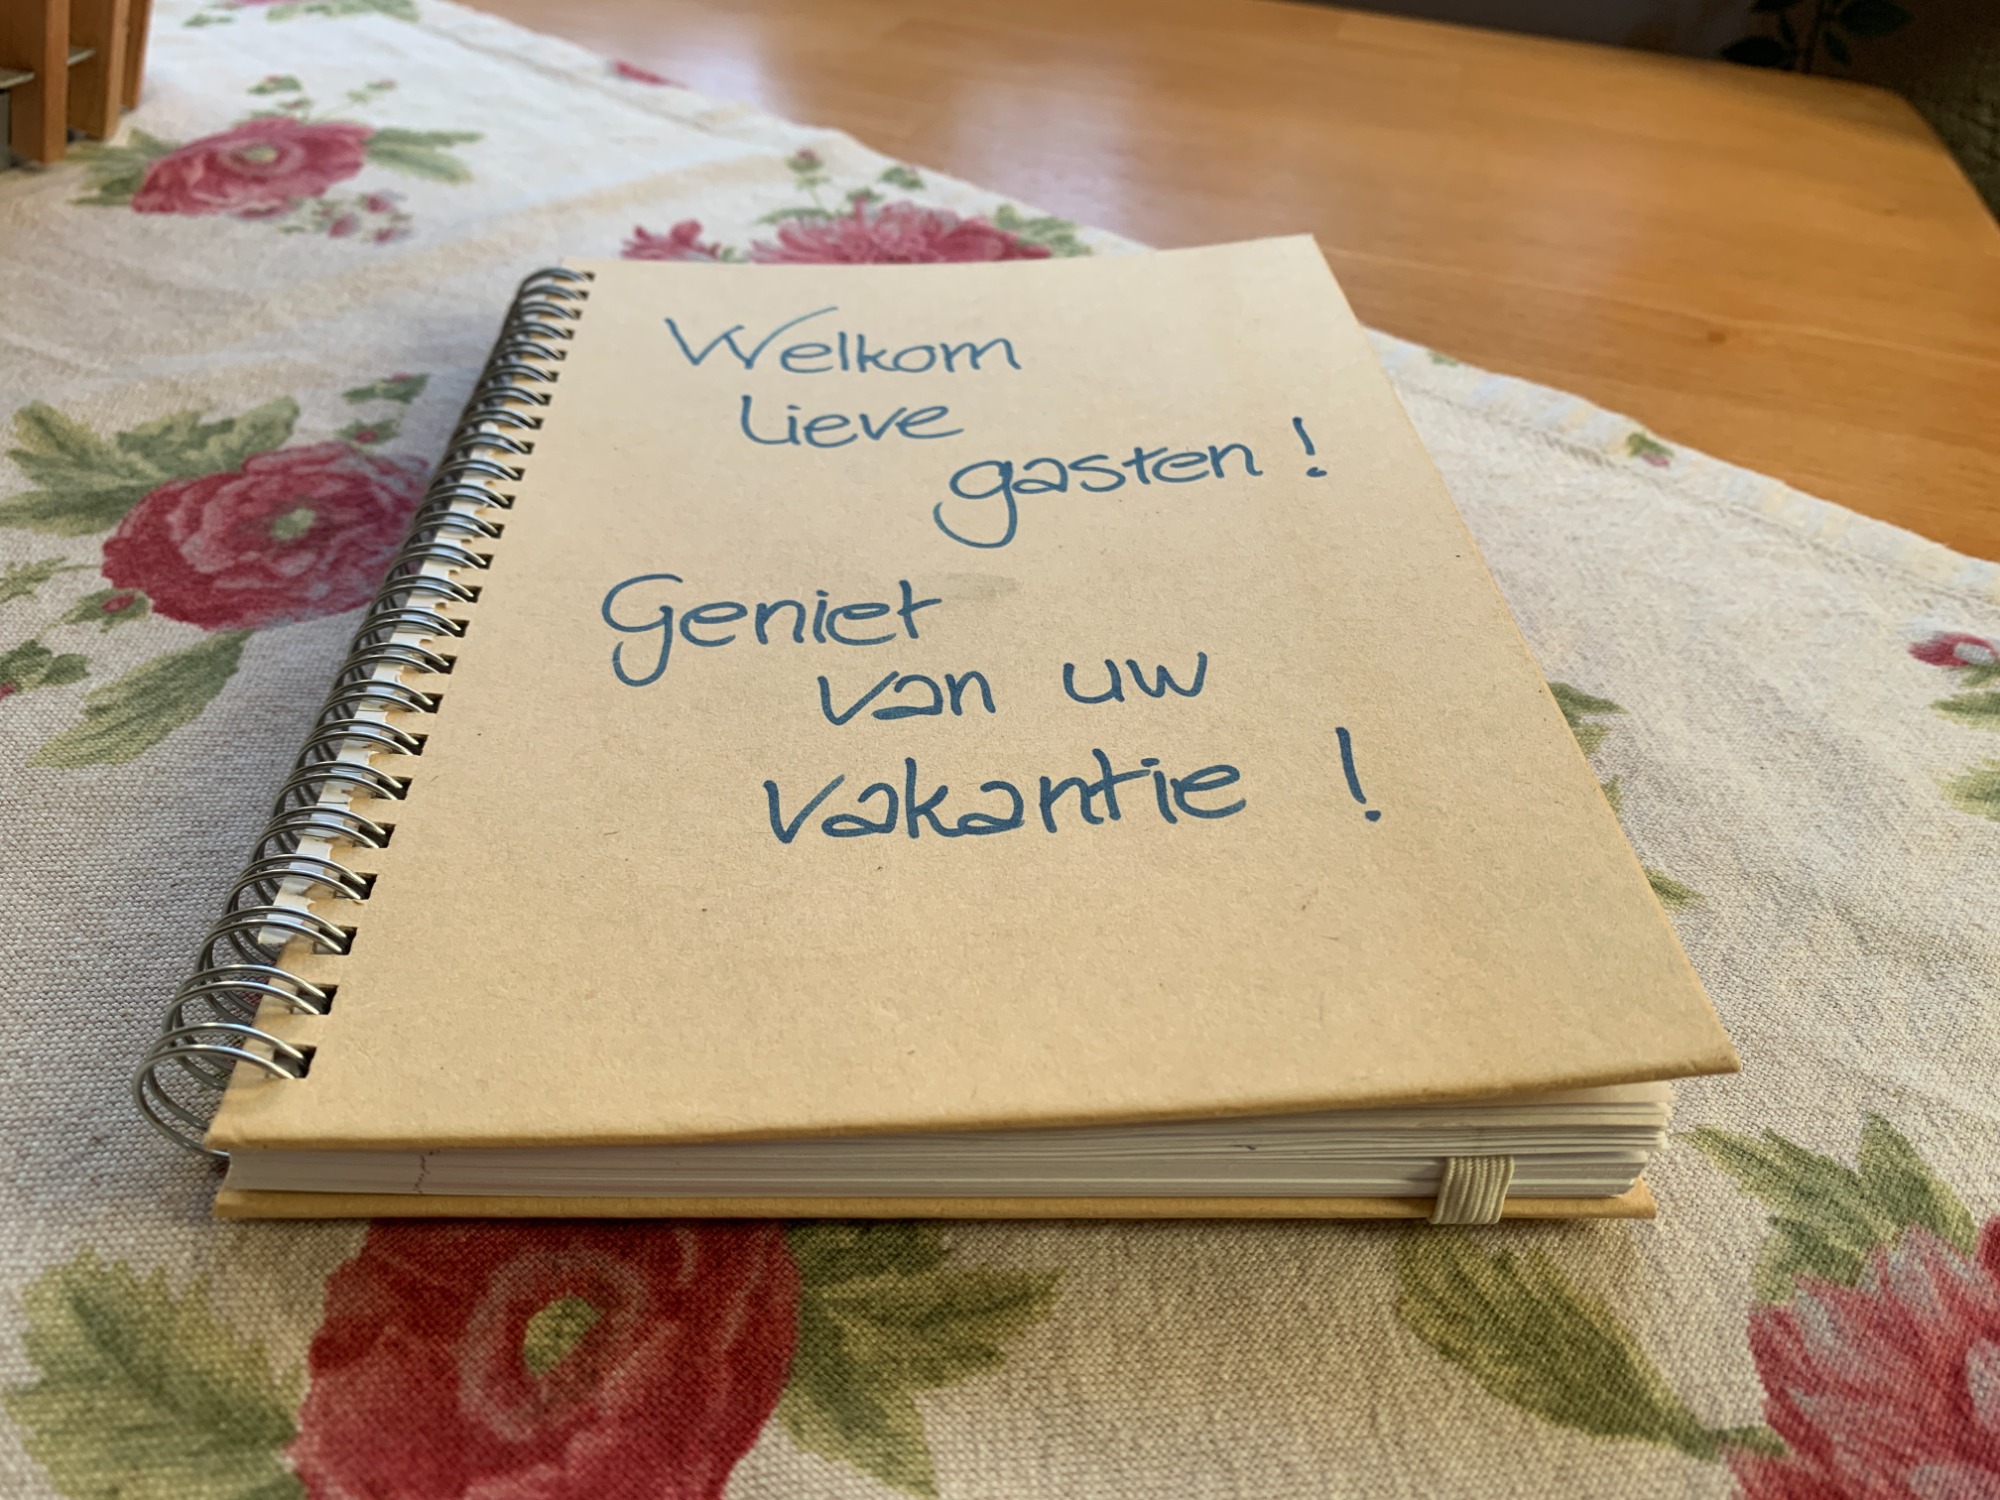 Welkom
Lieve
gasten!
Geniet
van uw
vakantie!